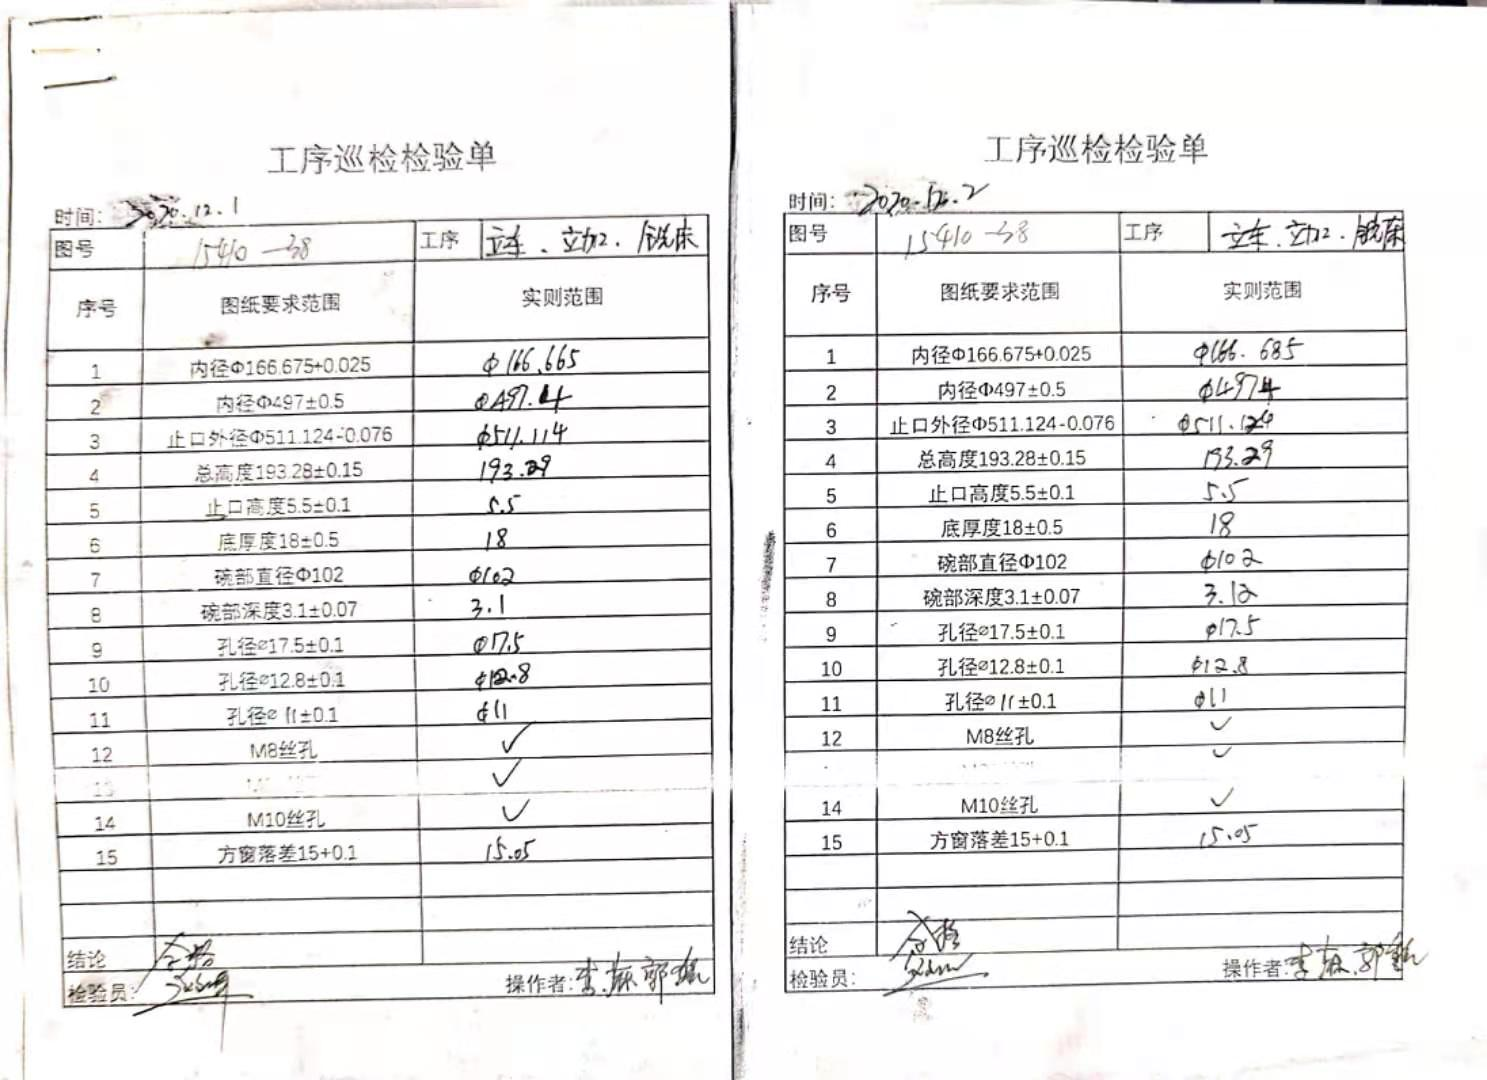 工序巡检检验单
时间: 2020.12.1
图号 15410-38 工序 立车、立加、铣床
序号 图纸要求范围 实则范围
1 内径Φ166.675+0.025 Φ166.665
2 内径Φ497±0.5 Φ497.4
3 止口外径Φ511.124-0.076 Φ511.114
4 总高度193.28±0.15 193.29
5 止口高度5.5±0.1 5.5
6 底厚度18±0.5 18
7 碗部直径Φ102 Φ102
8 碗部深度3.1±0.07 3.1
9 孔径⌀17.5±0.1 Φ17.5
10 孔径⌀12.8±0.1 Φ12.8
11 孔径⌀11±0.1 Φ11
12 M8丝孔 ✓
13 ✓
14 M10丝孔 ✓
15 方窗落差15+0.1 15.05
结论 合格
检验员: 操作者:
工序巡检检验单
时间: 2020.12.2
图号 15410-38 工序 立车、立加、铣床
序号 图纸要求范围 实则范围
1 内径Φ166.675+0.025 Φ166.685
2 内径Φ497±0.5 Φ497.4
3 止口外径Φ511.124-0.076 Φ511.124
4 总高度193.28±0.15 193.29
5 止口高度5.5±0.1 5.5
6 底厚度18±0.5 18
7 碗部直径Φ102 Φ102
8 碗部深度3.1±0.07 3.12
9 孔径⌀17.5±0.1 Φ17.5
10 孔径⌀12.8±0.1 Φ12.8
11 孔径⌀11±0.1 Φ11
12 M8丝孔 ✓
✓
14 M10丝孔 ✓
15 方窗落差15+0.1 15.05
结论 合格
检验员: 操作者: